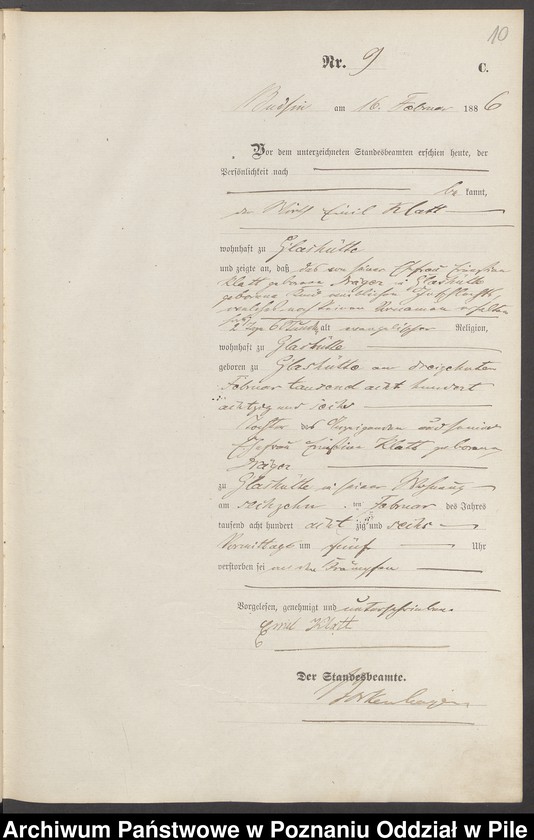 10
Nr. 9
C.
Budsin am 16. Februar 1886
Vor dem unterzeichneten Standesbeamten erschien heute, der
Persönlichkeit nach
be kannt,
der Wirth Emil Klatt
wohnhaft zu Glashütte
und zeigte an, daß das von seiner Ehefrau
Klatt geborenen Dräger in Glashütte
geborene Kind weiblichen Geschlechts,
welches noch keinen Vornamen erhalten
hat, 2 Tage 6 Stunden alt evangelischer Religion,
wohnhaft zu Glashütte
geboren zu Glashütte am dreizehnten
Februar tausend acht hundert
achtzig und sechs
Tochter des Anzeigenden und seiner
Ehefrau Klatt geborenen
Dräger
zu Glashütte in seiner Wohnung
am sechzehn ten Februar des Jahres
tausend acht hundert acht zig und sechs
Vormittags um fünf Uhr
verstorben sei an den Krämpfen
Vorgelesen, genehmigt und unterschrieben.
Emil Klatt
Der Standesbeamte.
Archiwum Państwowe w Poznaniu Oddział w Pile